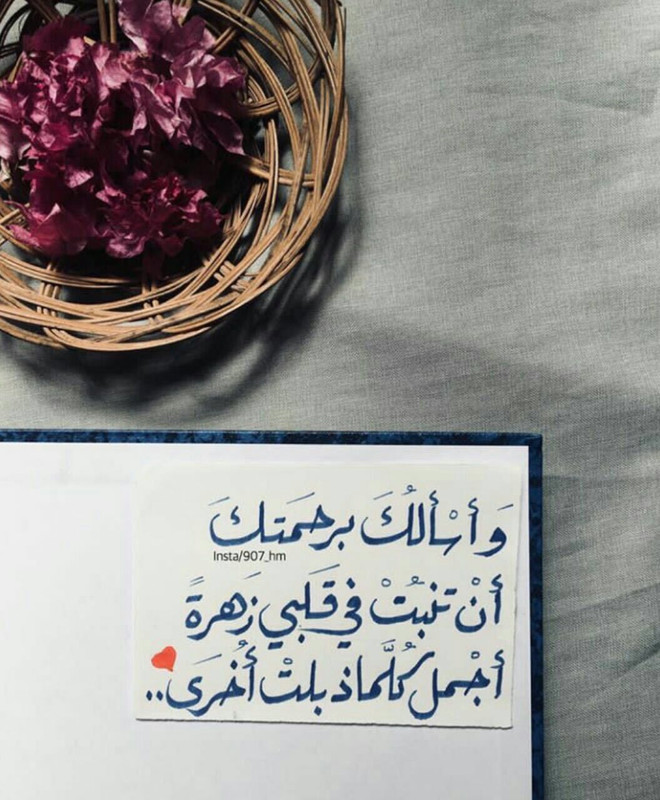 وَأسْألُكَ برحَمَتكَ
Insta/907_hm
أنْ تنبُتْ في قَلبي زَهرةً
أجْمل كُلَّما ذبلتْ أُخرَى..